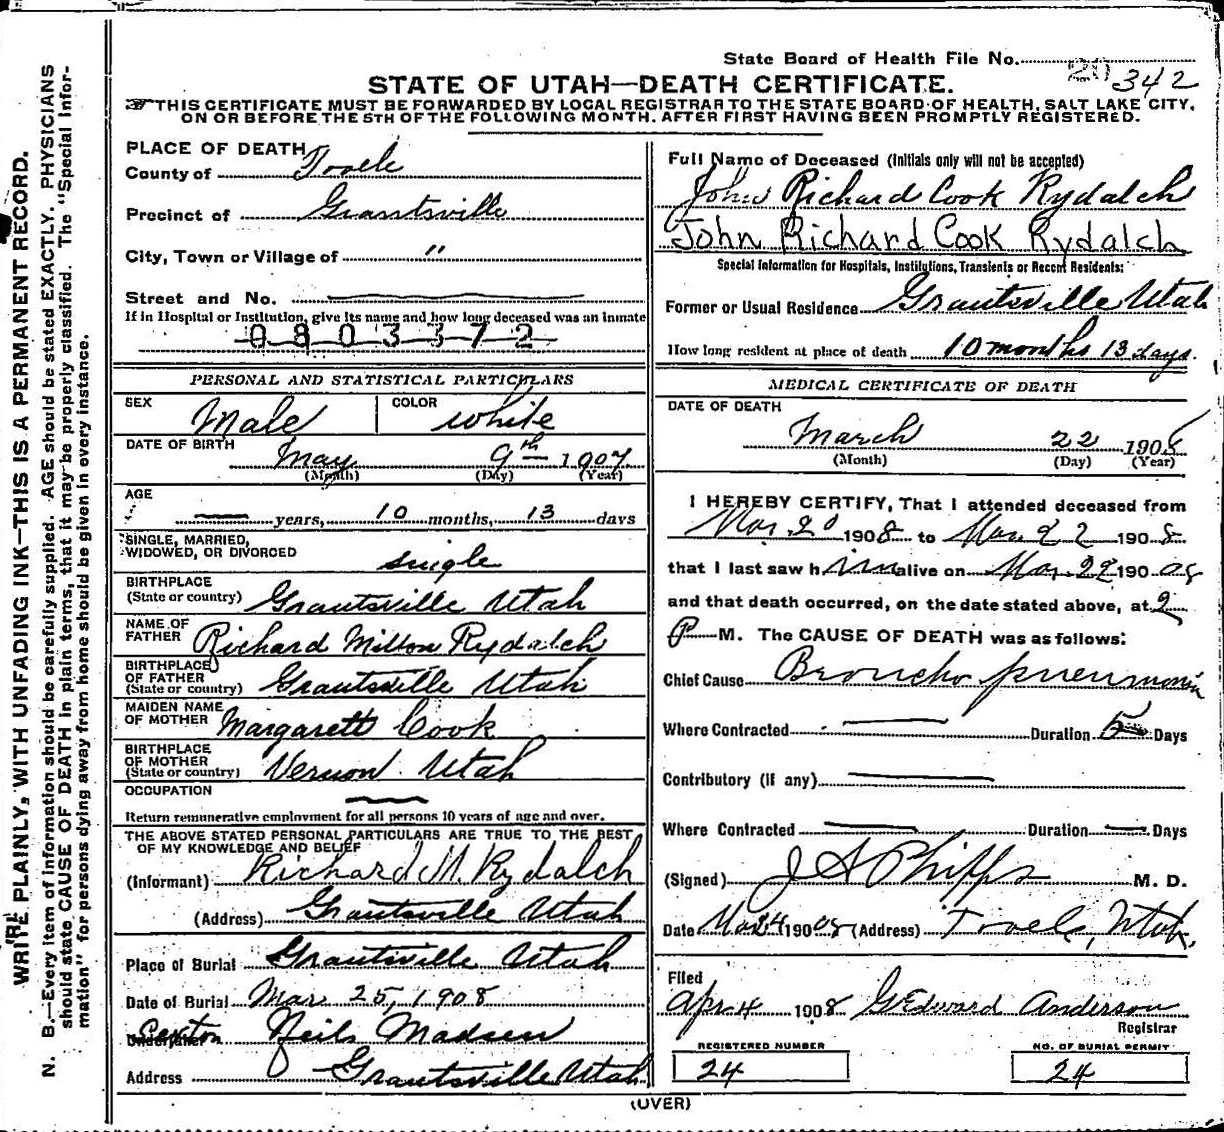 State Board of Health File No. 20 342
STATE OF UTAH—DEATH CERTIFICATE.
THIS CERTIFICATE MUST BE FORWARDED BY LOCAL REGISTRAR TO THE STATE BOARD OF HEALTH, SALT LAKE CITY,
ON OR BEFORE THE 5TH OF THE FOLLOWING MONTH, AFTER FIRST HAVING BEEN PROMPTLY REGISTERED.
WRITE PLAINLY, WITH UNFADING INK—THIS IS A PERMANENT RECORD.
N. B.—Every item of information should be carefully supplied. AGE should be stated EXACTLY. PHYSICIANS
should state CAUSE OF DEATH in plain terms, that it may be properly classified. The "Special Infor-
mation" for persons dying away from home should be given in every instance.
PLACE OF DEATH
County of Tooele
Precinct of Grantsville
City, Town or Village of "
Street and No.
If in Hospital or Institution, give its name and how long deceased was an inmate
0803372
PERSONAL AND STATISTICAL PARTICULARS
SEX Male COLOR White
DATE OF BIRTH May 9th 1907
(Month) (Day) (Year)
AGE
— years, 10 months, 13 days
SINGLE, MARRIED,
WIDOWED, OR DIVORCED single
BIRTHPLACE
(State or country) Grantsville Utah
NAME OF
FATHER Richard Milton Rydalch
BIRTHPLACE
OF FATHER
(State or country) Grantsville Utah
MAIDEN NAME
OF MOTHER Margarett Cook
BIRTHPLACE
OF MOTHER
(State or country) Vernon Utah
OCCUPATION
Return remunerative employment for all persons 10 years of age and over.
THE ABOVE STATED PERSONAL PARTICULARS ARE TRUE TO THE BEST
OF MY KNOWLEDGE AND BELIEF
(Informant) Richard M. Rydalch
(Address) Grantsville Utah
Place of Burial Grantsville Utah
Date of Burial Mar 25, 1908
Sexton Neils Madsen
Address Grantsville Utah
Full Name of Deceased (Initials only will not be accepted)
John Richard Cook Rydalch
John Richard Cook Rydalch
Special Information for Hospitals, Institutions, Transients or Recent Residents:
Former or Usual Residence Grantsville Utah
How long resident at place of death 10 months 13 days.
MEDICAL CERTIFICATE OF DEATH
DATE OF DEATH
March 22 1908
(Month) (Day) (Year)
I HEREBY CERTIFY, That I attended deceased from
Mar 20 1908 to Mar 22 1908
that I last saw him alive on Mar 22 1908
and that death occurred, on the date stated above, at 2
P M. The CAUSE OF DEATH was as follows:
Chief Cause Broncho pneumonia
Where Contracted — Duration 5 Days
Contributory (if any) —
Where Contracted — Duration — Days
(Signed) J A Phipps M. D.
Date Mar 24 1908 (Address) Tooele, Utah.
Filed
Apr 4 1908 G Edward Anderson
Registrar
REGISTERED NUMBER
24
NO. OF BURIAL PERMIT
24
(OVER)